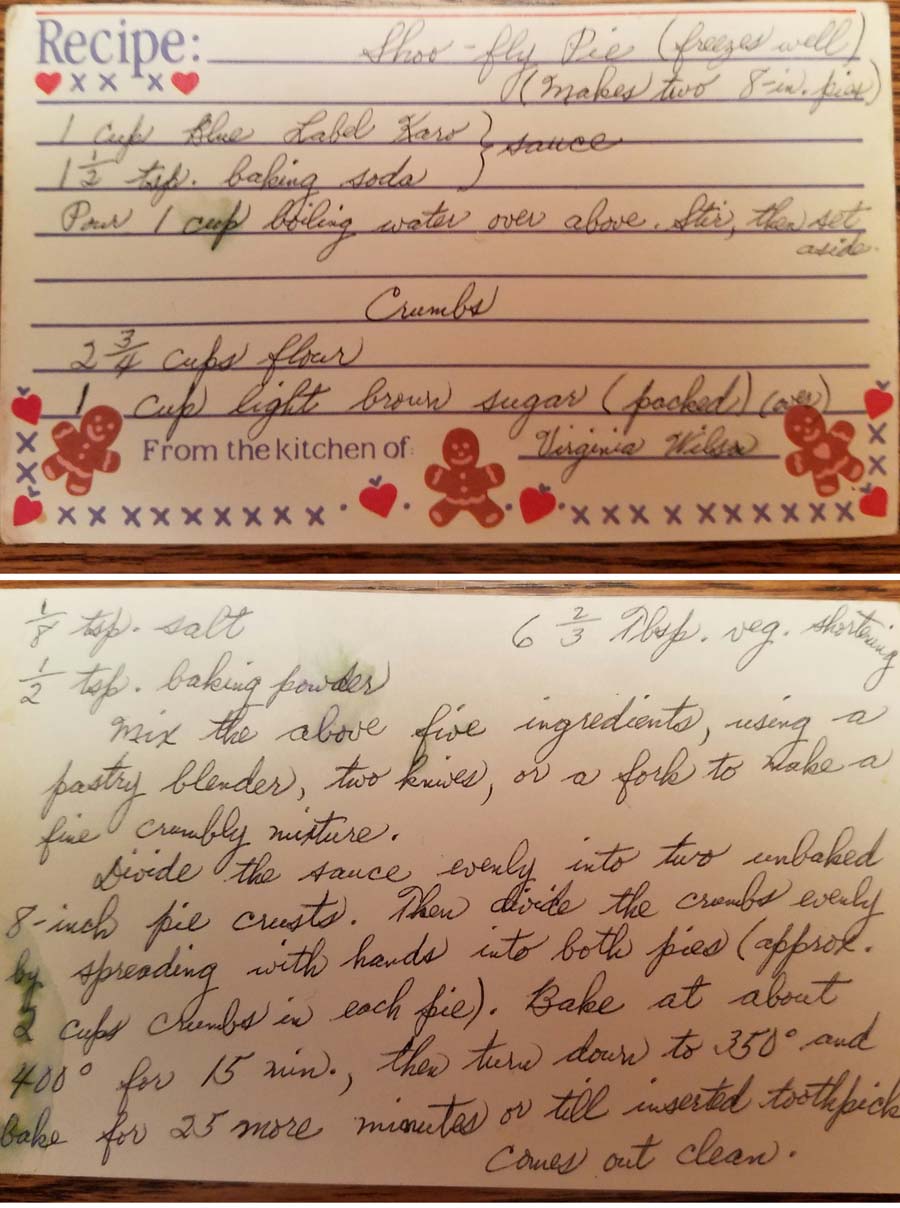 Recipe: Shoo-fly Pie (freezes well)
(Makes two 8-in. pies)
1 cup Blue Label Karo } sauce
1 1/2 tsp. baking soda
Pour 1 cup boiling water over above. Stir, then set
aside.
Crumbs
2 3/4 cups flour
1 cup light brown sugar (packed) (over)
From the kitchen of: Virginia Wilson
1/8 tsp. salt 6 2/3 Tbsp. veg. shortening
1/2 tsp. baking powder
Mix the above five ingredients, using a
pastry blender, two knives, or a fork to make a
fine crumbly mixture.
Divide the sauce evenly into two unbaked
8-inch pie crusts. Then divide the crumbs evenly
by spreading with hands into both pies (approx.
2 cups crumbs in each pie). Bake at about
400° for 15 min., then turn down to 350° and
bake for 25 more minutes or till inserted toothpick
comes out clean.